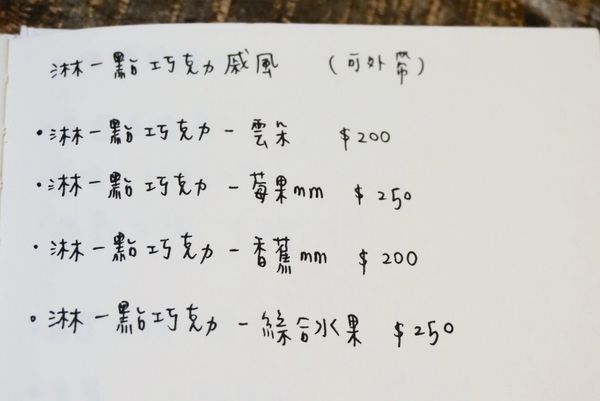 淋一點巧克力戚風 (可外帶)
・淋一點巧克力-雲朵 $200
・淋一點巧克力-莓果mm $250
・淋一點巧克力-香蕉mm $200
・淋一點巧克力-綜合水果 $250